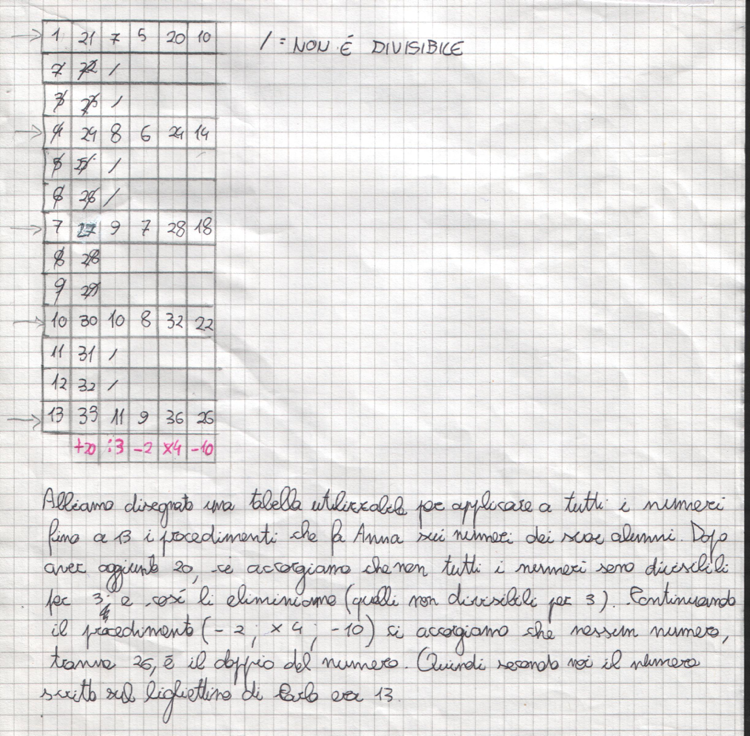 1 21 7 5 20 10
/ = NON É DIVISIBILE
2 22 /
3 23 /
4 24 8 6 24 14
5 25 /
6 26 /
7 27 9 7 28 18
8 28
9 29
10 30 10 8 32 22
11 31 /
12 32 /
13 33 11 9 36 26
+20 :3 -2 x4 -10
Abbiamo disegnato una tabella utilizzabile per applicare a tutti i numeri
fino a 13 i procedimenti che fa Anna sui numeri dei suoi alunni. Dopo
aver aggiunto 20, ci accorgiamo che non tutti i numeri sono divisibili
per 3, e così li eliminiamo (quelli non divisibili per 3). Continuando
il procedimento (-2; x4; -10) ci accorgiamo che nessun numero,
tranne 26, è il doppio del numero. Quindi secondo noi il numero
scritto sul bigliettino di Carlo era 13.